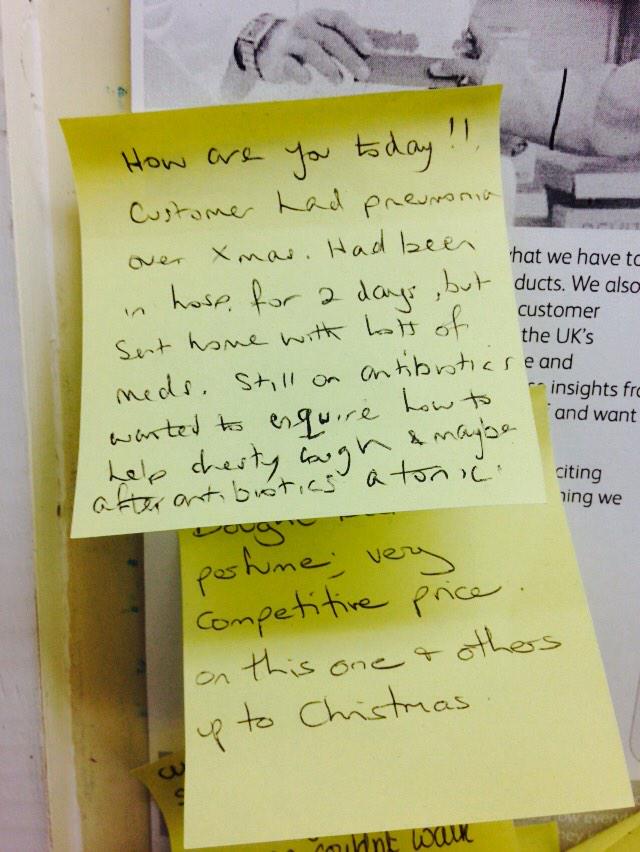 How are you today!!
Customer had pneumonia
over Xmas. Had been
in hosp. for 2 days, but
sent home with lotts of
meds. Still on antibiotics
wanted to enquire how to
help chesty cough & maybe
after antibiotics a tonic.
hat we have to
ducts. We also
customer
the UK's
e and
insights fro
and want
citing
ning we
Bought
perfume; very
competitive price.
on this one & others
up to Christmas
couldnt walk